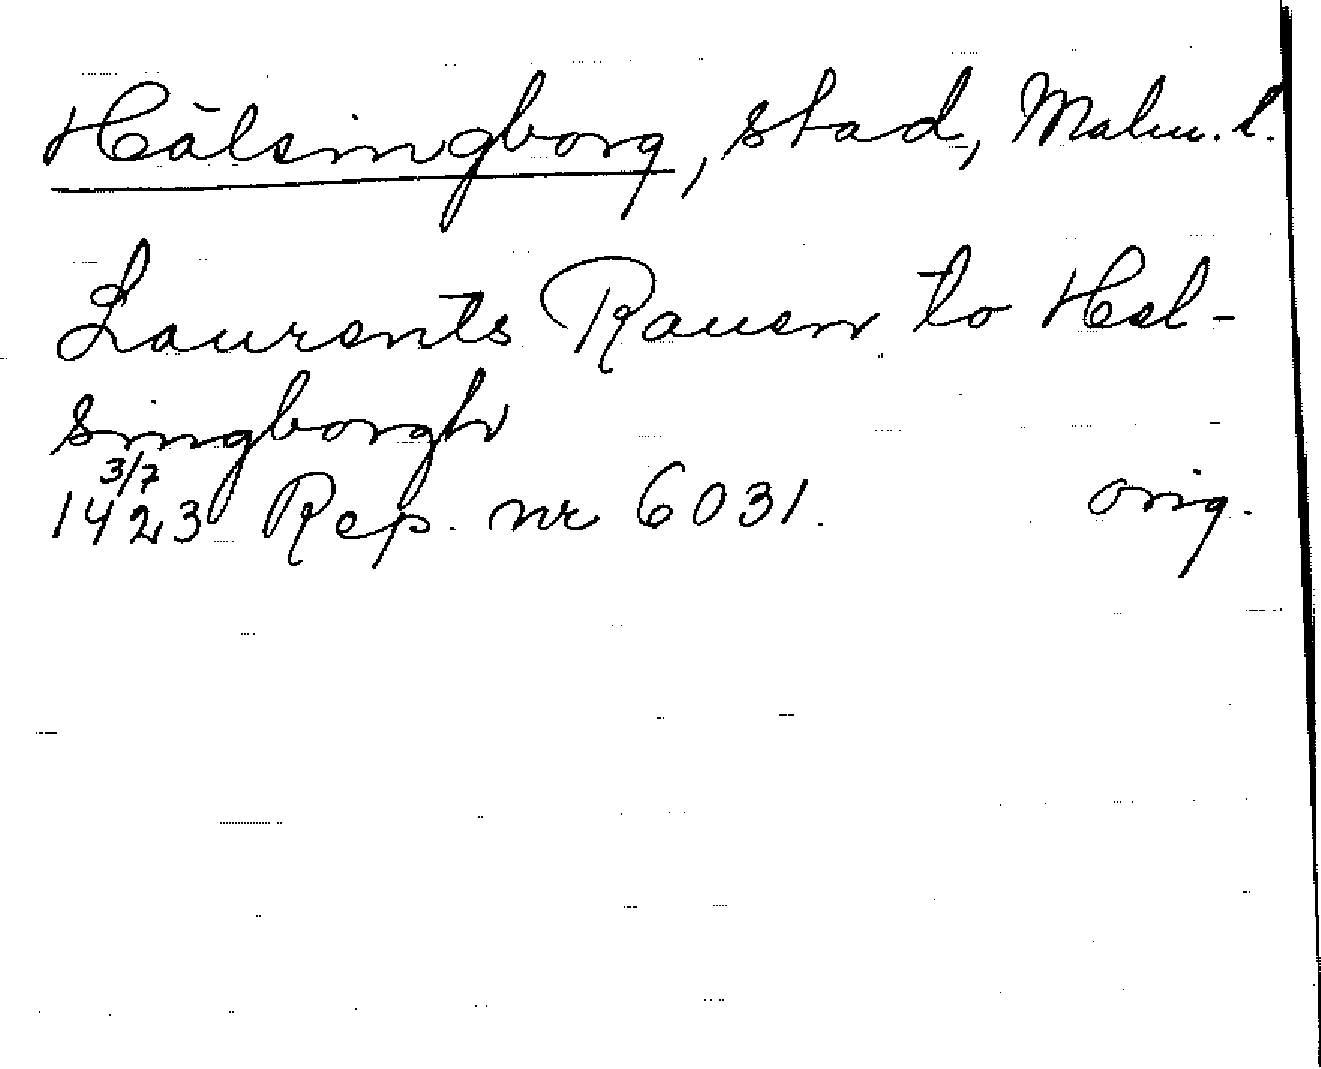 Hälsingborg, stad, Malm. l.
Laurents Rauen to Hel-
singborgh
3/7
1423 Rep. nr 6031. orig.